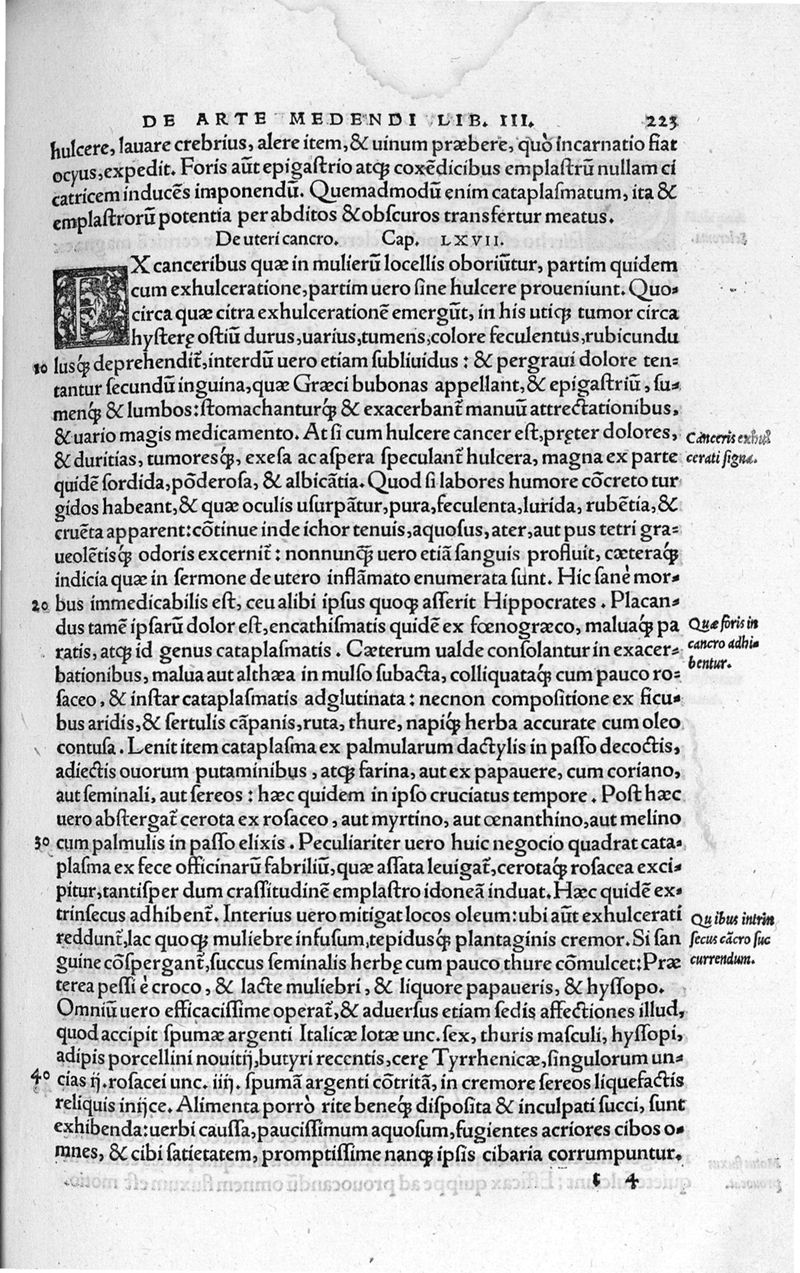 DE ARTE MEDENDI LIB. III. 223
hulcere, lauare crebrius, alere item, & uinum præbere, quò incarnatio fiat
ocyus, expedit. Foris aūt epigastrio atqꝫ coxēdicibus emplastrū nullam ci
catricem inducēs imponendū. Quemadmodū enim cataplasmatum, ita &
emplastrorū potentia per abditos & obscuros transfertur meatus.
De uteri cancro. Cap. LXVII.
EX canceribus quæ in mulierū locellis oboriūtur, partim quidem
cum exhulceratione, partim uero sine hulcere proueniunt. Quo-
circa quæ citra exhulcerationē emergūt, in his utiqꝫ tumor circa
hysterę ostiū durus, uarius, tumens, colore feculentus, rubicundu
10 lusqꝫ deprehendit̃, interdū uero etiam subliuidus: & pergraui dolore ten-
tantur secundū inguina, quæ Græci bubonas appellant, & epigastriū, su-
menqꝫ & lumbos: stomachanturqꝫ & exacerbant̃ manuū attrectationibus,
& uario magis medicamento. At si cum hulcere cancer est, pręter dolores,
Canceris exhul
& duritias, tumoresqꝫ, exesa ac aspera speculant̃ hulcera, magna ex parte
cerati signa.
quidē sordida, pōderosa, & albicātia. Quod si labores humore cōcreto tur
gidos habeant, & quæ oculis usurpātur, pura, feculenta, lurida, rubētia, &
cruēta apparent: cōtinue inde ichor tenuis, aquosus, ater, aut pus tetri gra-
ueolētisqꝫ odoris excernit̃: nonnunqꝫ uero etiā sanguis profluit, cæteraqꝫ
indicia quæ in sermone de utero inflāmato enumerata sunt. Hic sanè mor-
20 bus immedicabilis est, ceu alibi ipsus quoqꝫ asserit Hippocrates. Placan-
dus tamē ipsarū dolor est, encathismatis quidē ex fœnogræco, maluaqꝫ pa
Quæ foris in
ratis, atqꝫ id genus cataplasmatis. Cæterum ualde consolantur in exacer-
cancro adhi-
bentur.
bationibus, malua aut althæa in mulso subacta, colliquataqꝫ cum pauco ro-
saceo, & instar cataplasmatis adglutinata: necnon compositione ex ficu-
bus aridis, & sertulis cāpanis, ruta, thure, napiqꝫ herba accurate cum oleo
contusa. Lenit item cataplasma ex palmularum dactylis in passo decoctis,
adiectis ouorum putaminibus, atqꝫ farina, aut ex papauere, cum coriano,
aut seminali, aut sereos: hæc quidem in ipso cruciatus tempore. Post hæc
uero abstergat̃ cerota ex rosaceo, aut myrtino, aut œnanthino, aut melino
30 cum palmulis in passo elixis. Peculiariter uero huic negocio quadrat cata-
plasma ex fece officinarū fabriliū, quæ assata leuigat̃, cerotaqꝫ rosacea exci-
pitur, tantisper dum crassitudinē emplastro idoneā induat. Hæc quidē ex-
trinsecus adhibent̃. Interius uero mitigat locos oleum: ubi aūt exhulcerati
Quibus intrin
reddunt̃, lac quoqꝫ muliebre infusum, tepidusqꝫ plantaginis cremor. Si san
secus cācro suc
guine cōspergant̃, succus seminalis herbę cum pauco thure cōmulcet: Præ
currendum.
terea pessi è croco, & lacte muliebri, & liquore papaueris, & hyssopo.
Omniū uero efficacissime operat̃, & aduersus etiam sedis affectiones illud,
quod accipit spumæ argenti Italicæ lotæ unc. sex, thuris masculi, hyssopi,
adipis porcellini nouitij, butyri recentis, cerę Tyrrhenicæ, singulorum un-
40 cias ij. rosacei unc. iiij. spumā argenti cōtritā, in cremore sereos liquefactis
reliquis inijce. Alimenta porrò rite beneqꝫ disposita & inculpati succi, sunt
exhibenda: uerbi caussa, paucissimum aquosum, fugientes acriores cibos o-
mnes, & cibi satietatem, promptissime nanqꝫ ipsis cibaria corrumpuntur.
t 4